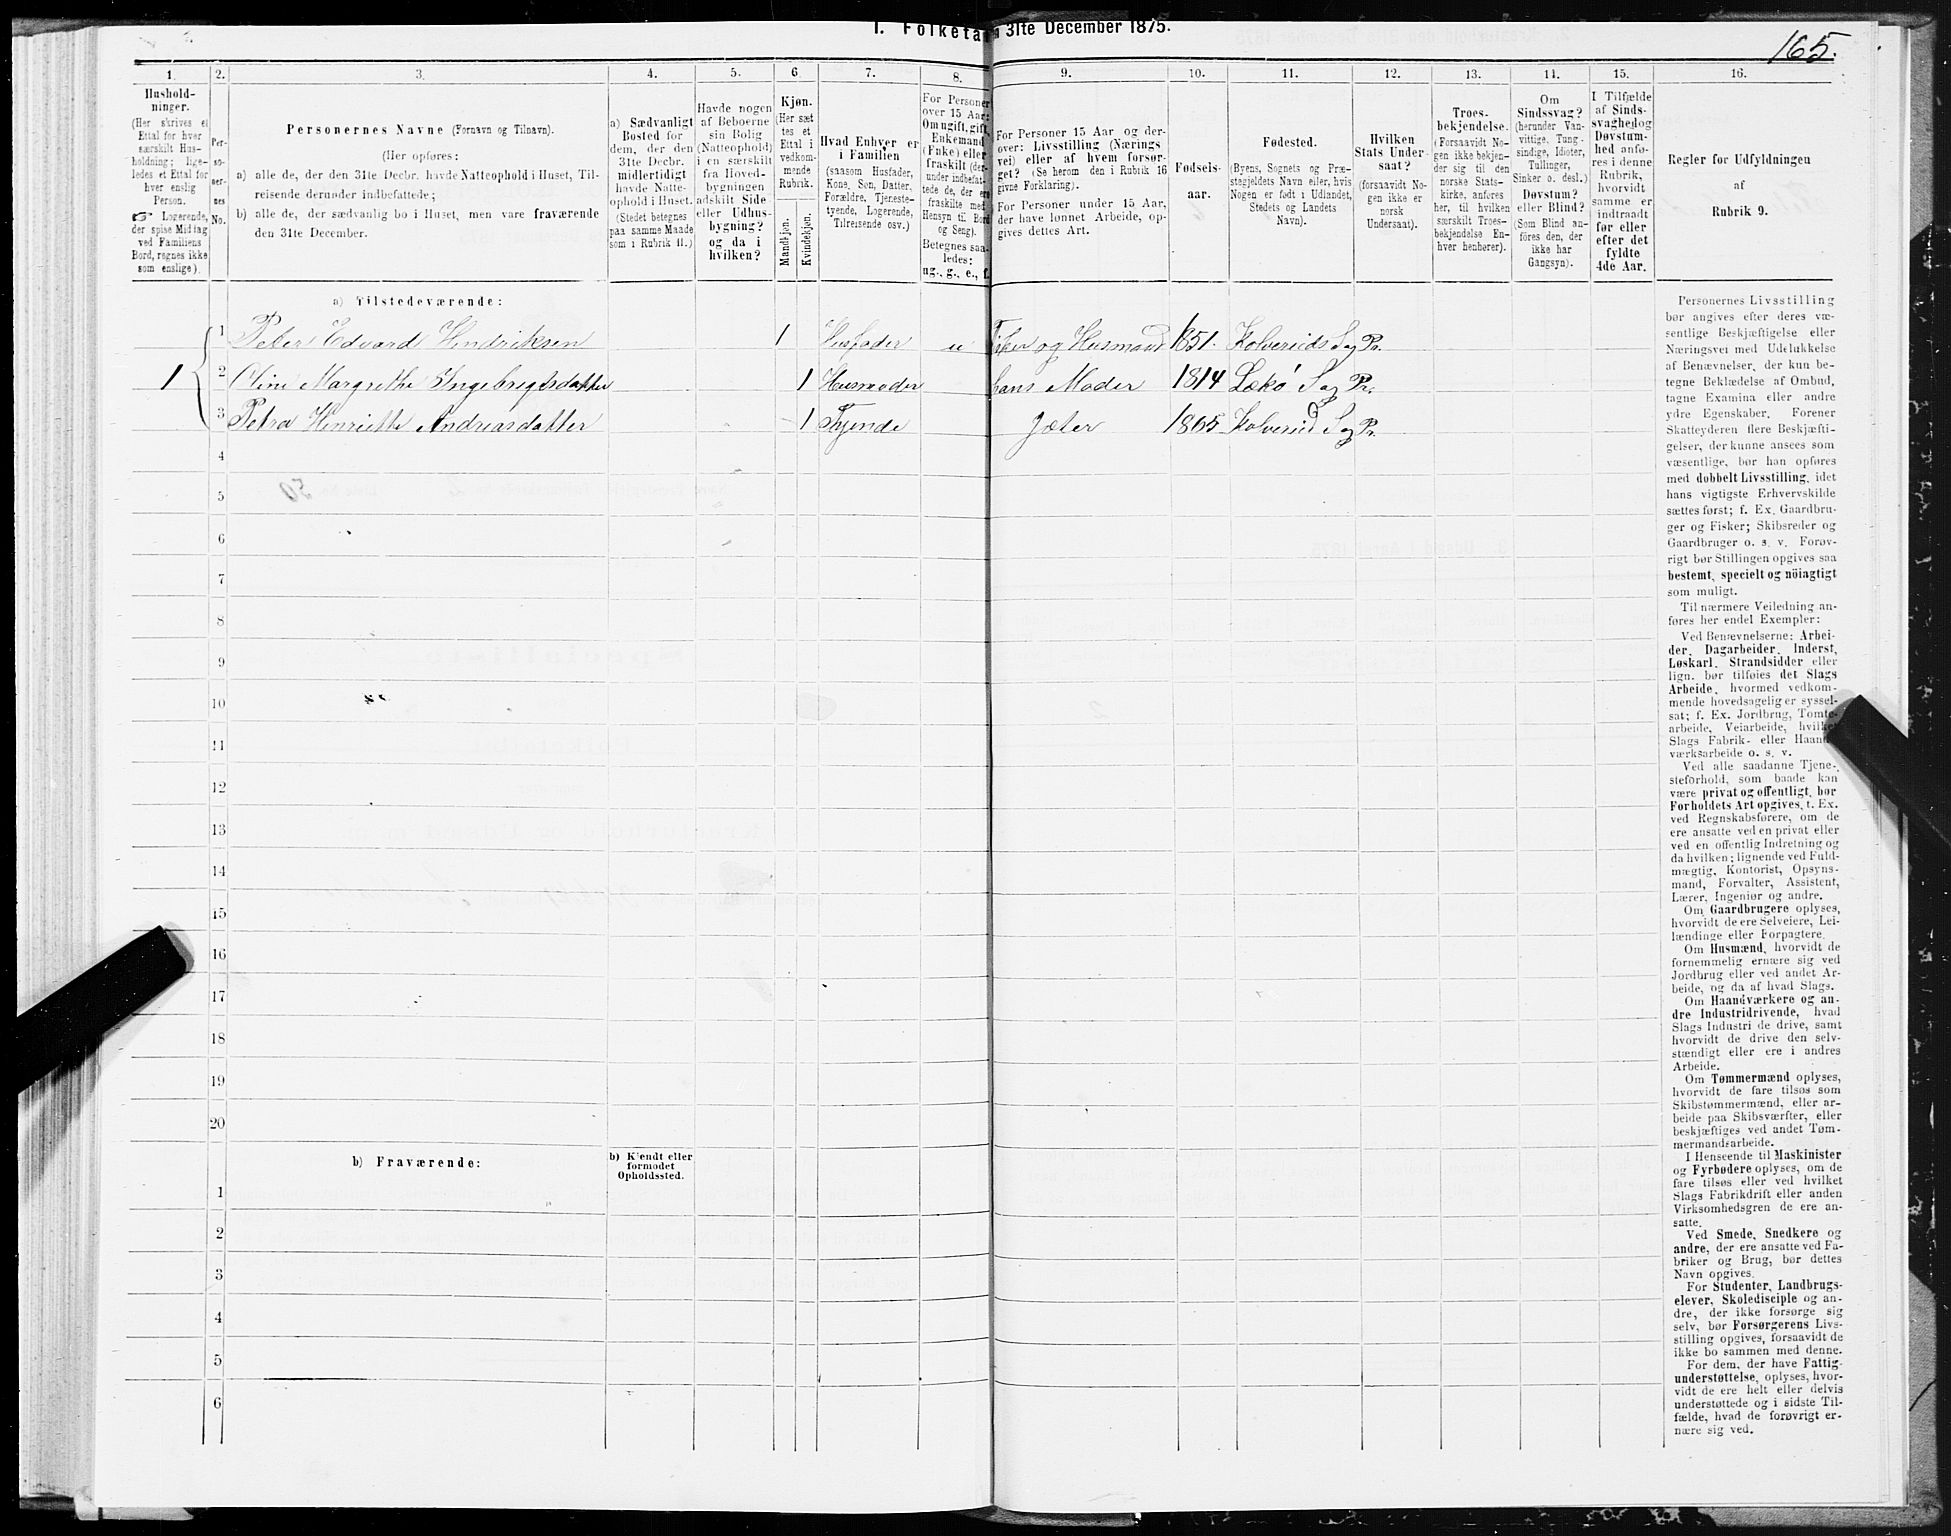 1. Folketæ 31te December 1875.
165.
1. 2. 3. 4. 5. 6. 7. 8. 9. 10. 11. 12. 13. 14. 15. 16.
Hushold-
ninger.
(Her skrives et
Ettal for hver
særskilt Hus-
holdning; lige-
ledes et Ettal for
hver enslig
Person.
☞ Logerende,
der spise Middag
ved Familiens
Bord, regnes ikke
som enslige).
Per-
so-
ner-
nes
No.
Personernes Navne (Fornavn og Tilnavn).
(Her opføres:
a) alle de, der den 31te Decbr. havde Natteophold i Huset, Til-
reisende derunder indbefattede;
b) alle de, der sædvanlig bo i Huset, men vare fraværende
den 31te December.
a) Sædvanligt
Bosted for
dem, der den
31te Decbr.
midlertidigt
havde Natte-
ophold i Huset.
(Stedet betegnes
paa samme Maade
som i Rubrik 11.)
Havde nogen
af Beboerne
sin Bolig
(Natteophold)
i en særskilt
fra Hoved-
bygningen
adskilt Side
eller Udhus-
bygning?
og da i
hvilken?
Kjøn.
(Her sæt
tes et
Ettal i
vedkom-
mende
Rubrik.
Mandkjøn.
Kvindekjøn.
Hvad Enhver er
i Familien
(saasom Husfader,
Kone, Søn, Datter,
Forældre, Tjeneste-
tyende, Logerende,
Tilreisende osv.)
For Personer
over 15 Aar:
Om ugift, gift,
Enkemand
(Enke) eller
fraskilt (der-
under indbefat-
tede de, der ere
fraskilte med
Hensyn til Bord
og Seng).
Betegnes saa-
ledes:
ug., g., e., f.
For Personer 15 Aar og der-
over: Livsstilling (Nærings
vei) eller af hvem forsør-
get? (Se herom den i Rubrik 16
givne Forklaring).
For Personer under 15 Aar,
der have lønnet Arbeide, op-
gives dettes Art.
Fødsels-
aar.
Fødested.
(Byens, Sognets og Præ-
stegjeldets Navn eller, hvis
Nogen er født i Udlandet,
Stedets og Landets
Navn).
Hvilken
Stats Under-
saat?
(forsaavidt No-
gen ikke er
norsk
Undersaat).
Troes-
bekjendelse.
(Forsaavidt No-
gen ikke bekjen-
der sig til den
norske Stats-
kirke, anføres
her, til hvilken
særskilt Troes-
bekjendelse En-
hver henhører).
Om
Sindssvag?
(herunder Van-
vittige, Tung-
sindige, Idioter,
Tullinger,
Sinker o. desl.)
Døvstum?
eller Blind?
(Som Blind an-
føres den, der
ikke har
Gangsyn).
I Tilfælde
af Sinds-
svaghed og
Døvstum-
hed anfø-
res i denne
Rubrik,
hvorvidt
samme er
indtraadt
før eller
efter det
fyldte
4de Aar.
Regler for Udfyldningen
af
Rubrik 9.
a) Tilstedeværende:
1 Peter Edvard Hendriksen 1 Husfader u Fisker og Husmand 1851. Kolvereids S og Pr.
1 2 Oline Margrethe Ingebrigtsdatter 1 Husmoder hans Moder 1814 Lekø S og Pr.
3 Petra Henriette Andreasdatter 1 Tyende Jæter 1865 Kolvereid S og Pr.
4
5
6
7
8
9
10
11
12
13
14
15
16
17
18
19
20
b) Fraværende:
b) Kjendt eller
formodet
Opholdssted.
1
2
3
4
5
6
Personernes Livsstilling
bør angives efter deres væ-
sentlige Beskjæftigelse eller
Næringsvei med Udelukkelse
af Benævnelser, der kun be-
tegne Beklædelse af Ombud,
tagne Examina eller andre
ydre Egenskaber. Forener
Skatteyderen flere Beskjæfti-
gelser, der kunne ansees som
væsentlige, bør han opføres
med dobbelt Livsstilling, idet
hans vigtigste Erhvervskilde
sættes først; f. Ex. Gaardbru-
ger og Fisker; Skibsreder og
Gaardbruger o. s. v. Forøv-
rigt bør Stillingen opgives saa
bestemt, specielt og nöiagtigt
som muligt.
Til nærmere Veiledning an-
føres her endel Exempler:
Ved Benævnelserne: Arbei-
der, Dagarbeider, Inderst,
Løskarl, Strandsidder eller
lign. bør tilføies det Slags
Arbeide, hvormed vedkom-
mende hovedsagelig er syssel-
sat; f. Ex. Jordbrug, Tomte-
arbeide, Veiarbeide, hvilket
Slags Fabrik- eller Haand-
værksarbeide o. s. v.
Ved alle saadanne Tjene-
steforhold, som baade kan
være privat og offentligt, bør
Forholdets Art opgives, t. Ex.
ved Regnskabsførere, om de
ere ansatte ved en privat eller
ved en offentlig Indretning og
da hvilken; lignende ved Fuld-
mægtig, Kontorist, Opsyns-
mand, Forvalter, Assistent,
Lærer, Ingeniør og andre.
Om Gaardbrugere oplyses,
hvorvidt de ere Selveiere, Lei-
lændinge eller Forpagtere.
Om Husmænd, hvorvidt de
fornemmelig ernære sig ved
Jordbrug eller ved andet Ar-
beide, og da af hvad Slags.
Om Haandværkere og an-
dre Industridrivende, hvad
Slags Industri de drive, samt
hvorvidt de drive den selv-
stændigt eller ere i andres
Arbeide.
Om Tømmermænd oplyses,
hvorvidt de fare tilsøs som
Skibstømmermænd, eller ar-
beide paa Skibsværfter, eller
beskjæftiges ved andet Tøm-
mermandsarbeide.
I Henseende til Maskinister
og Fyrbødere oplyses, om de
fare tilsøs eller ved hvilket
Slags Fabrikdrift eller anden
Virksomhedsgren de ere an-
satte.
Ved Smede, Snedkere og
andre, der ere ansatte ved Fa-
briker og Brug, bør dettes
Navn opgives.
For Studenter, Landbrugs-
elever, Skoledisciple og an-
dre, der ikke forsørge sig
selv, bør Forsørgerens Livs-
stilling opgives, forsaavidt de
ikke bo sammen med denne.
For dem, der have Fattig-
understøttelse, oplyses, hvor-
vidt de ere helt eller delvis
understøttede og i sidste Til-
fælde, hvad de forøvrigt er-
nære sig ved.